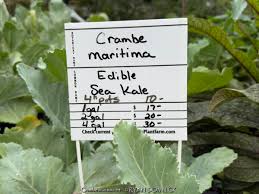 Crambe
maritima
Edible
Sea Kale
4" pots 10-
1gal $ 17-
2 gal $ 20-
4 gal $ 30-
Check current Plantfarm.com